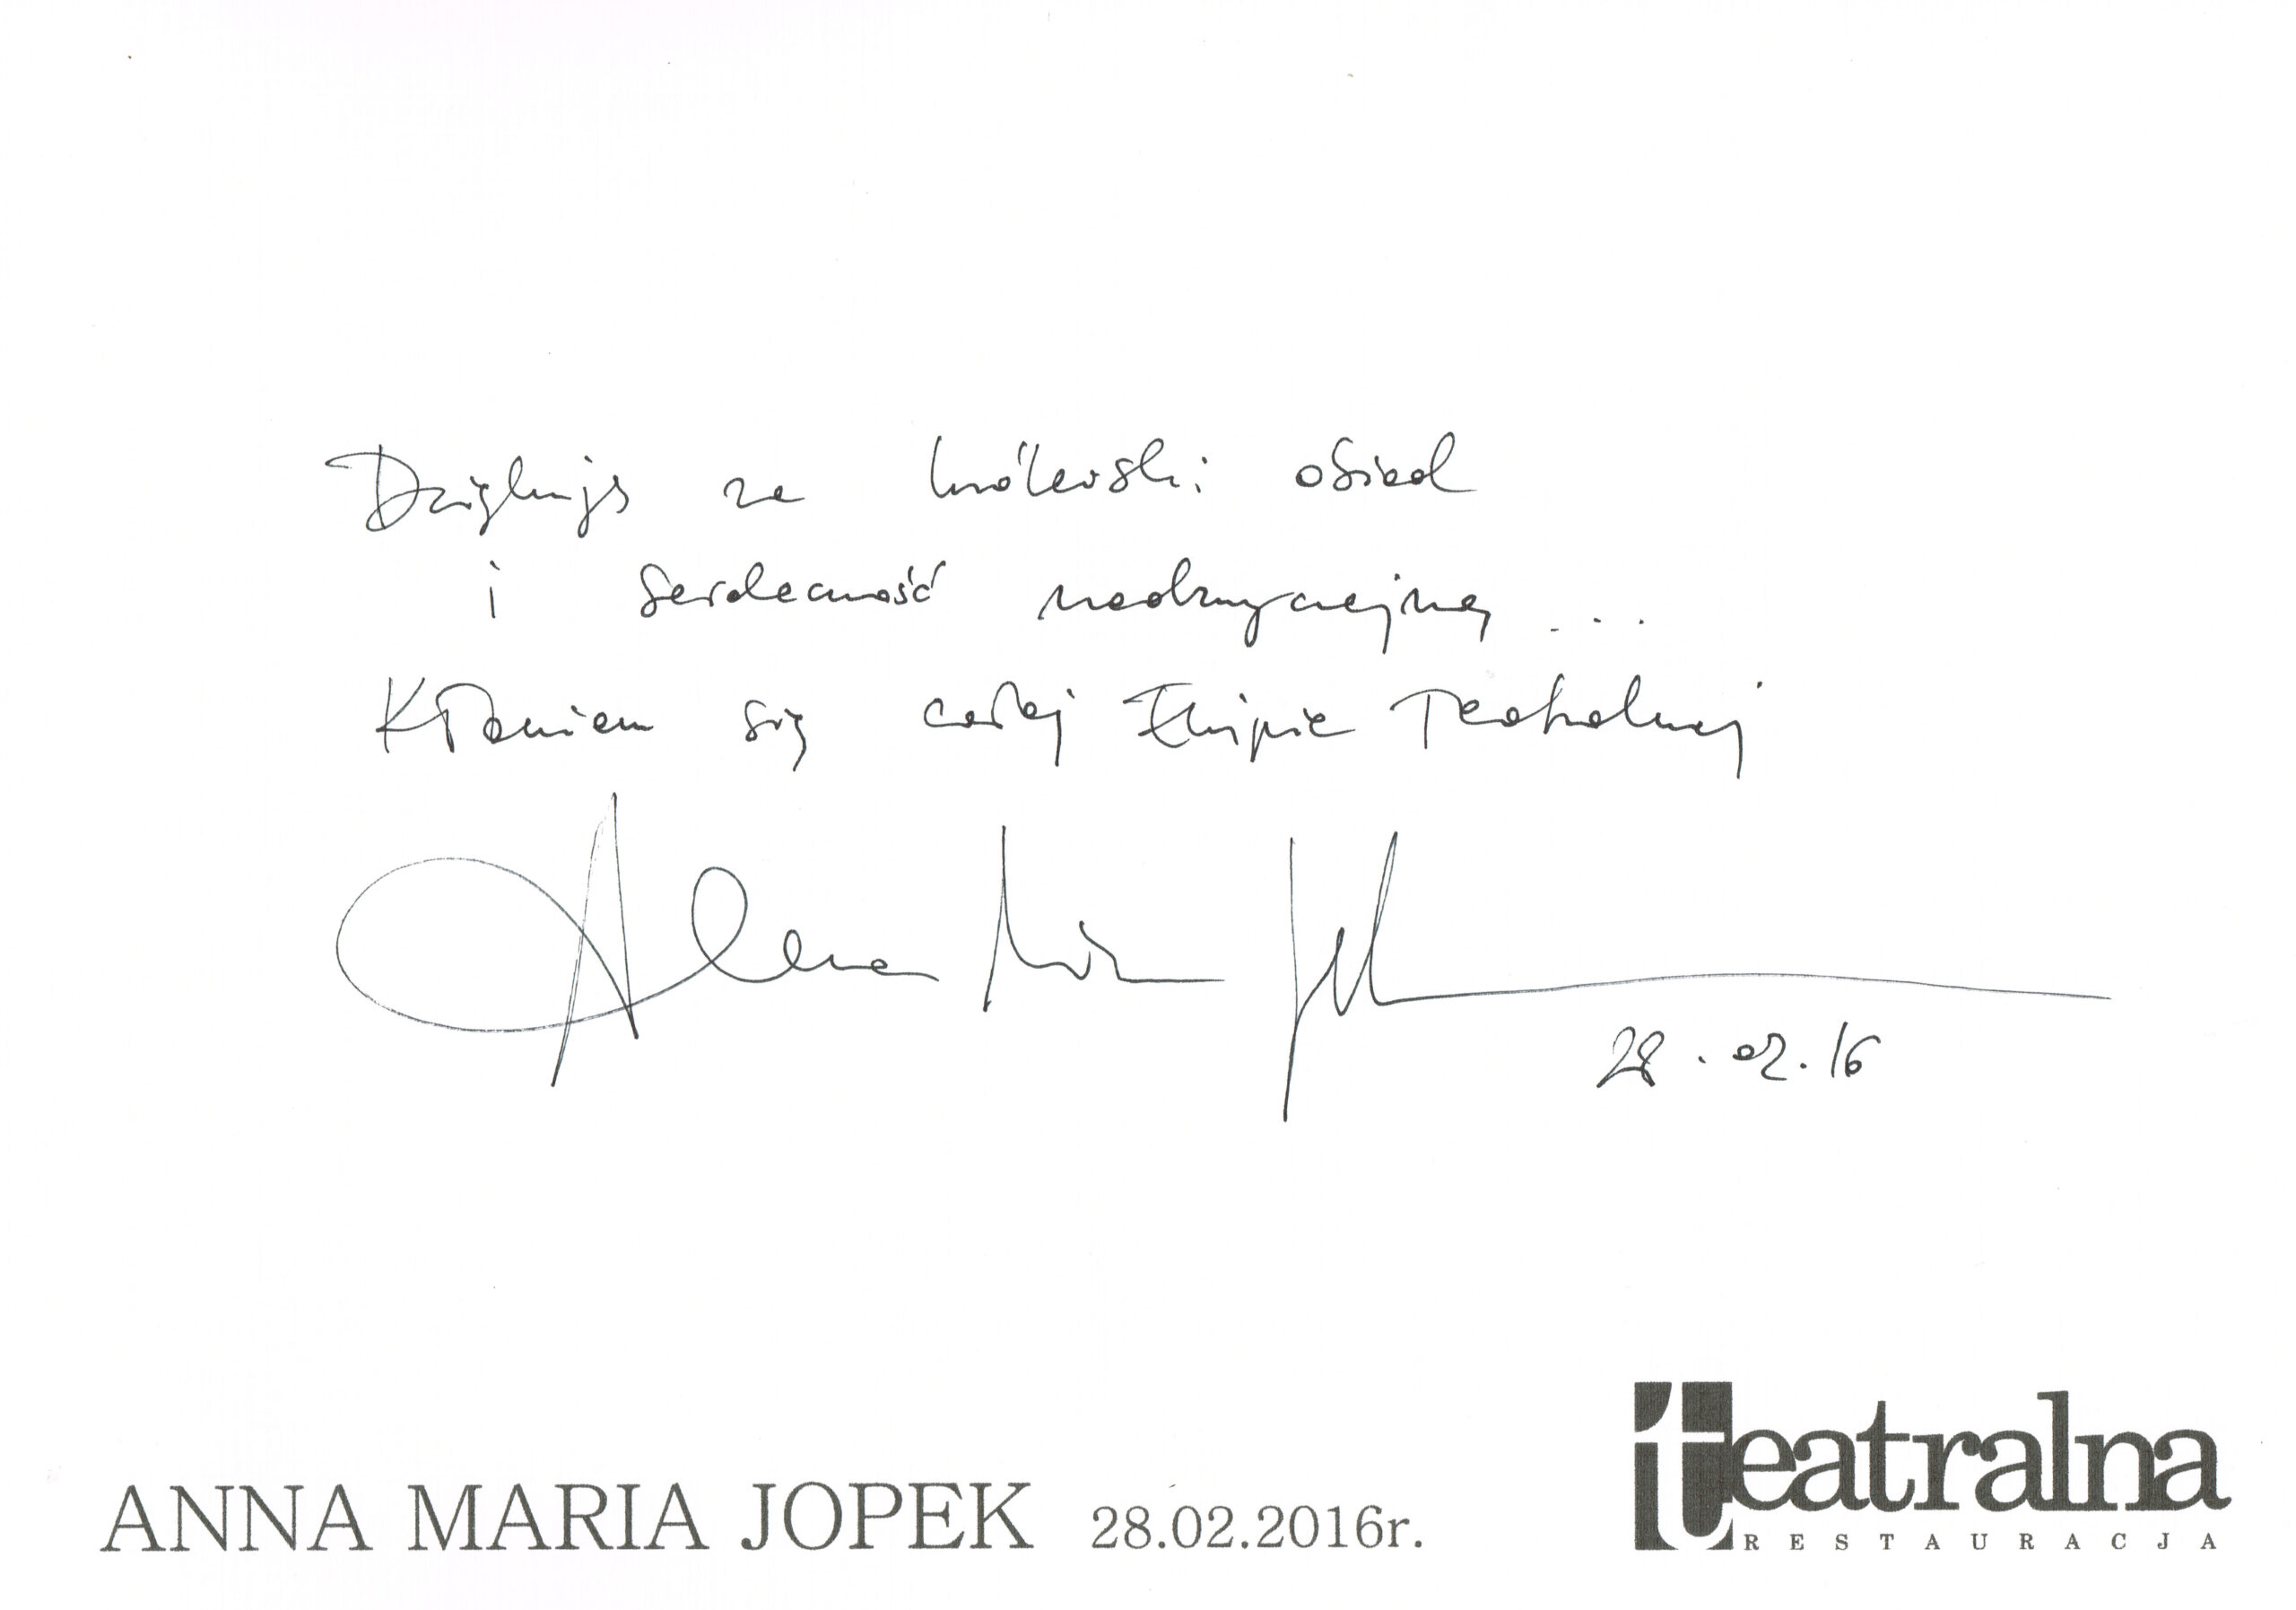 Dziękuję za królewski obiad
i serdeczność nadzwyczajną ...
Kłaniam się całej Ekipie Teatralnej
Anna Maria Jopek
28.02.16
ANNA MARIA JOPEK 28.02.2016r.
teatralna
RESTAURACJA